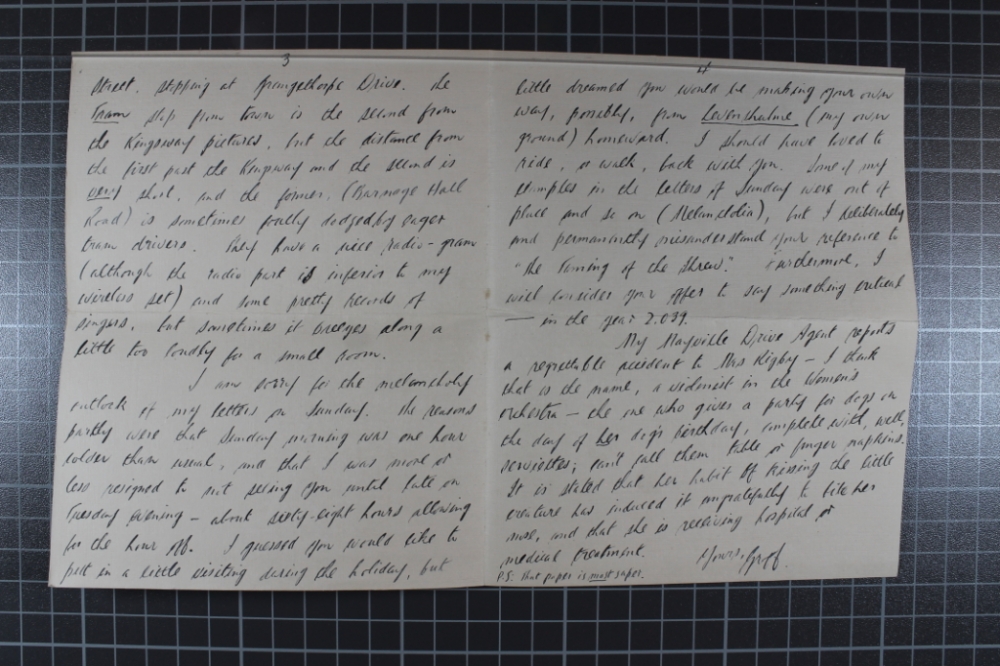 3
street, stopping at Grangethorpe Drive. The
Tram stop from town is the second from
the Kingsway pictures, but the distance from
the first past the Kingsway and the second is
very short, and the former, (Burnage Hall
Road) is sometimes partly dodged by eager
tram drivers. They have a nice radio-gram
(although the radio part is inferior to my
wireless set) and some pretty records of
singers, but sometimes it breezes along a
little too loudly for a small room.
I am sorry for the melancholy
outlook of my letters on Sunday. The reasons
partly were that Sunday morning was one hour
colder than usual, and that I was more or
less resigned to not seeing you until late on
Tuesday evening - about sixty-eight hours allowing
for the hour off. I guessed you would like to
put in a little visiting during the holiday, but
4
little dreamed you would be making your own
way, possibly, from Levenshulme (my own
ground) homeward. I should have loved to
ride, or walk, back with you. Some of my
examples in the letters of Sunday were out of
place and so on (Melancholia), but I deliberately
and permanently misunderstand your reference to
"The Taming of the Shrew." Furthermore, I
will consider your offer to say something critical
— in the year 2,039.
My Mayville Drive Agent reports
a regrettable accident to Mrs Rigby - I think
that is the name, a violinist in the Women's
orchestra - the one who gives a party for dogs on
the day of her dog's birthday, complete with, well,
serviettes; can't call them table or finger napkins.
It is stated that her habit of kissing the little
creature has induced it ungratefully to bite her
nose, and that she is receiving hospital or
medical treatment.
Yours, Griff.
P.S. That paper is most safer.